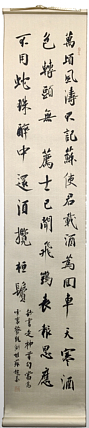 萬頃風濤不記蘇使君載酒為回車天寒酒
色轉頭無薦士已聞飛鶚表報恩應
不用蛇珠醉中還許攬桓鬚